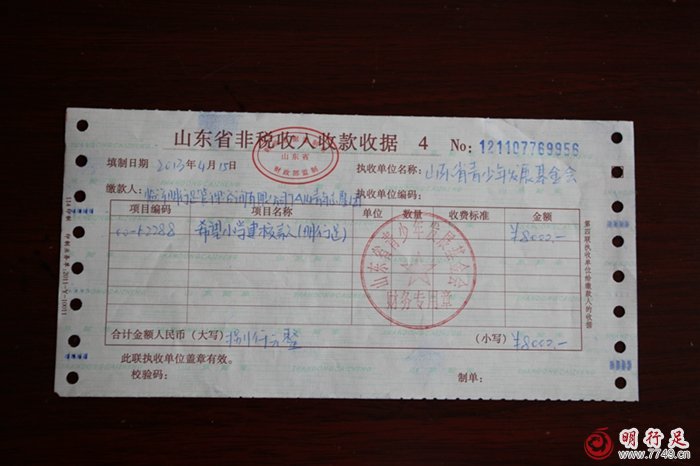 山东省非税收入收款收据 4 No: 121107769956
山东省
财政部监制
填制日期 2013年4月15日 执收单位名称: 山东省青少年发展基金会
缴款人: 执收单位编码:
项目编码 项目名称 单位 数量 收费标准 金额
希望小学建校款(明行足) ¥8000.-
山东省青少年发展基金会
财务专用章
合计金额人民币(大写) 捌仟元整 (小写) ¥8000.-
此联执收单位盖章有效。
校验码: 制单:
第四联执收单位给缴款人的收据
明行足
www.7749.cn